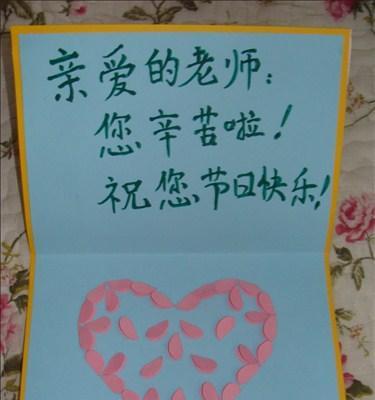 亲爱的老师：
您辛苦啦！
祝您节日快乐！